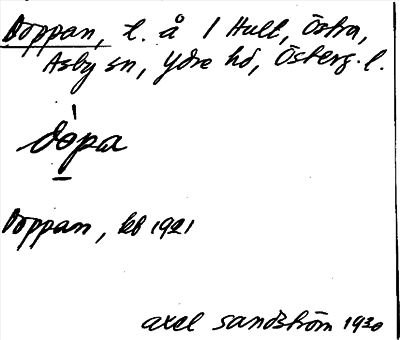 Doppan, t. å 1 Hult, Östra,
Asby sn, Ydre hd, Österg. l.
dòpa
Doppan, kb 1921
Axel Sandström 1930